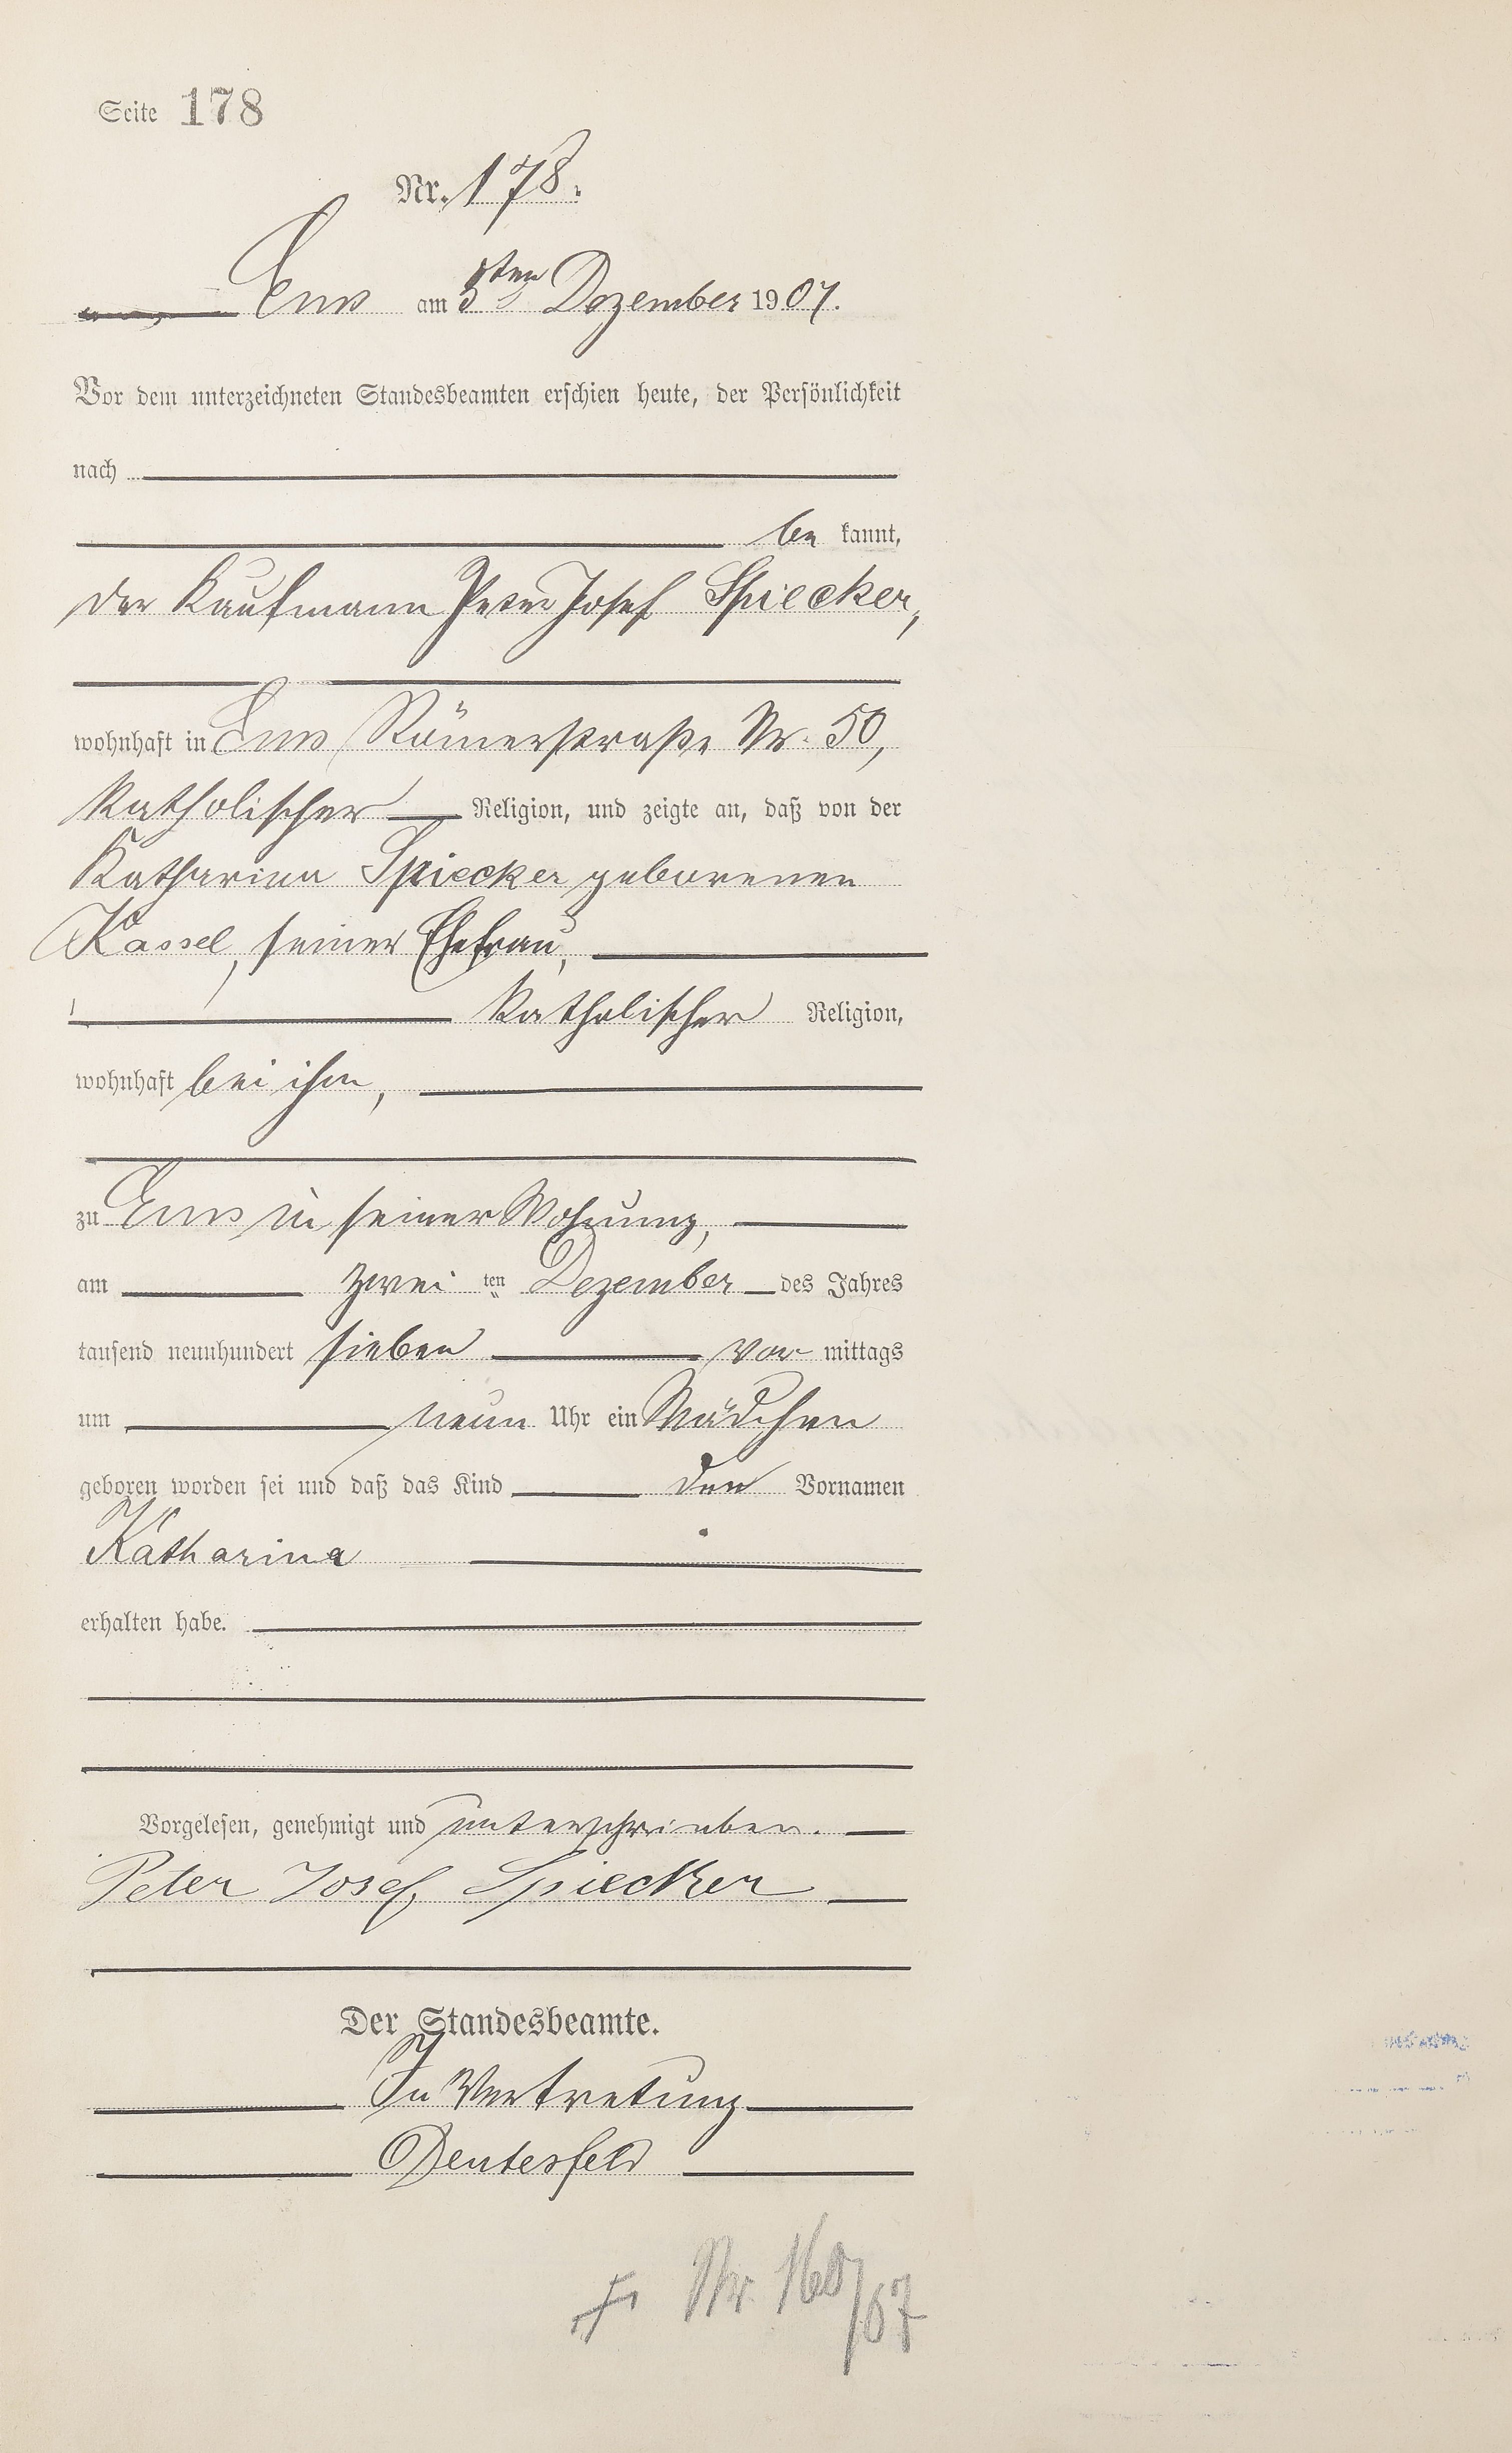 Seite 178
Nr. 178.
Ems am 3ten Dezember 1907.
Vor dem unterzeichneten Standesbeamten erschien heute, der Persönlichkeit
nach
be kannt,
der Kaufmann Peter Josef Spiecker,
wohnhaft in Ems Römerstraße Nr. 50,
katholischer Religion, und zeigte an, daß von der
Katharina Spiecker geborenen
Kassel, seiner Ehefrau,
katholischer Religion,
wohnhaft bei ihm,
zu Ems in seiner Wohnung,
am zwei ten Dezember des Jahres
tausend neunhundert sieben vor mittags
um neun Uhr ein Mädchen
geboren worden sei und daß das Kind den Vornamen
Katharina
erhalten habe.
Vorgelesen, genehmigt und unterschrieben.
Peter Josef Spiecker
Der Standesbeamte.
In Vertretung
Deutesfeld
† Nr. 160/07